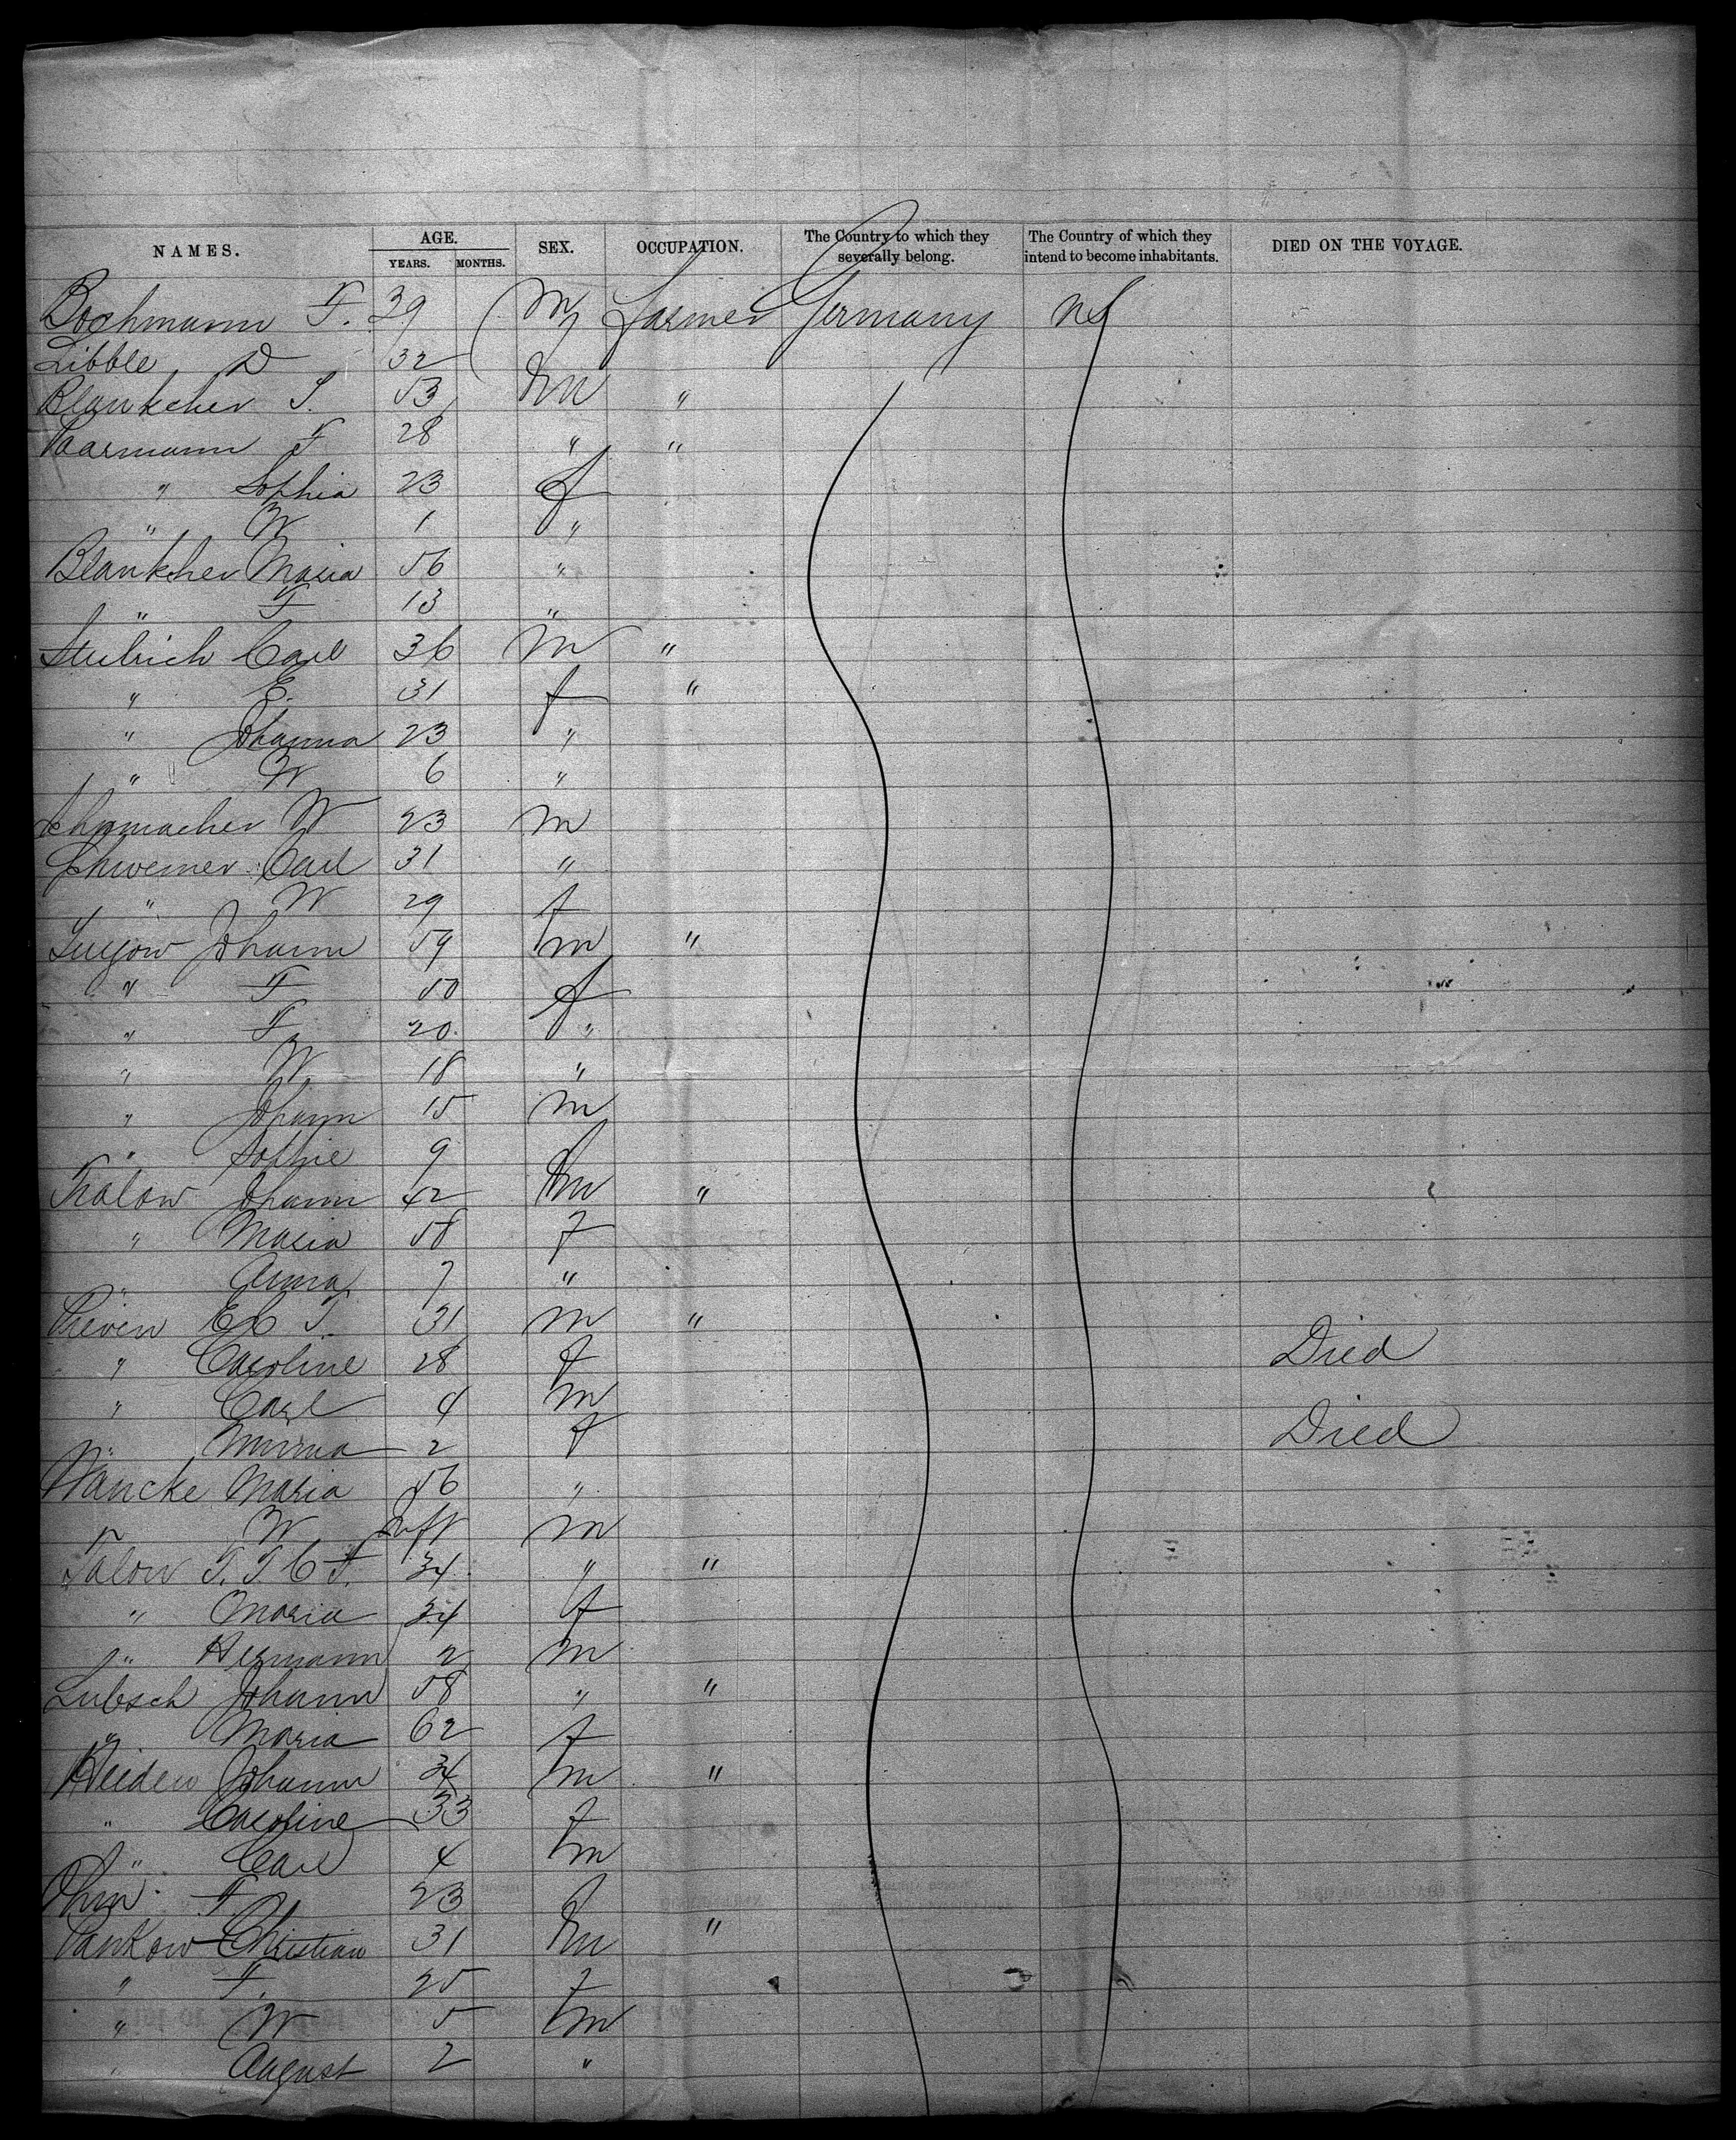 NAMES. AGE. SEX. OCCUPATION. The Country to which they severally belong. The Country of which they intend to become inhabitants. DIED ON THE VOYAGE.
YEARS. MONTHS.
Bochmann F. 39 m Farmer Germany
Libble D 32
Blankcher J. 53 m "
Paarmann F 28 " "
" Sophia 23 f
" W 1 "
Blankcher Maria 56 "
" F 13 "
Stulrich Carl 36 m "
" E. 31 f "
" Johanna 23 "
" W 6 "
Schumacher W 23 m
Schwemer Carl 31 "
" W 29 f
Johann 59 m "
" F 50 f
" F 20. "
" W 18 "
" Johann 15 m
" Sophie 9
Tralow Johann 42 m "
" Maria 58 f
" Anna 7 "
31 m "
" Caroline 28 f Died
" Carl 4 m
" Minna 2 f Died
Wancke Maria 56 "
" W Inft m
Salow F. J. C F. 34 " "
" Maria 34 f
" Hermann 2 m
Lubsch Johann 58 " "
" Maria 62 f
Heiden Johann 34 m "
" Caroline 33 f
" Carl 4 m
Ohm F. 23
Pankow Christian 31 m "
" F. 25 f
" W 5 m
" August 2 "